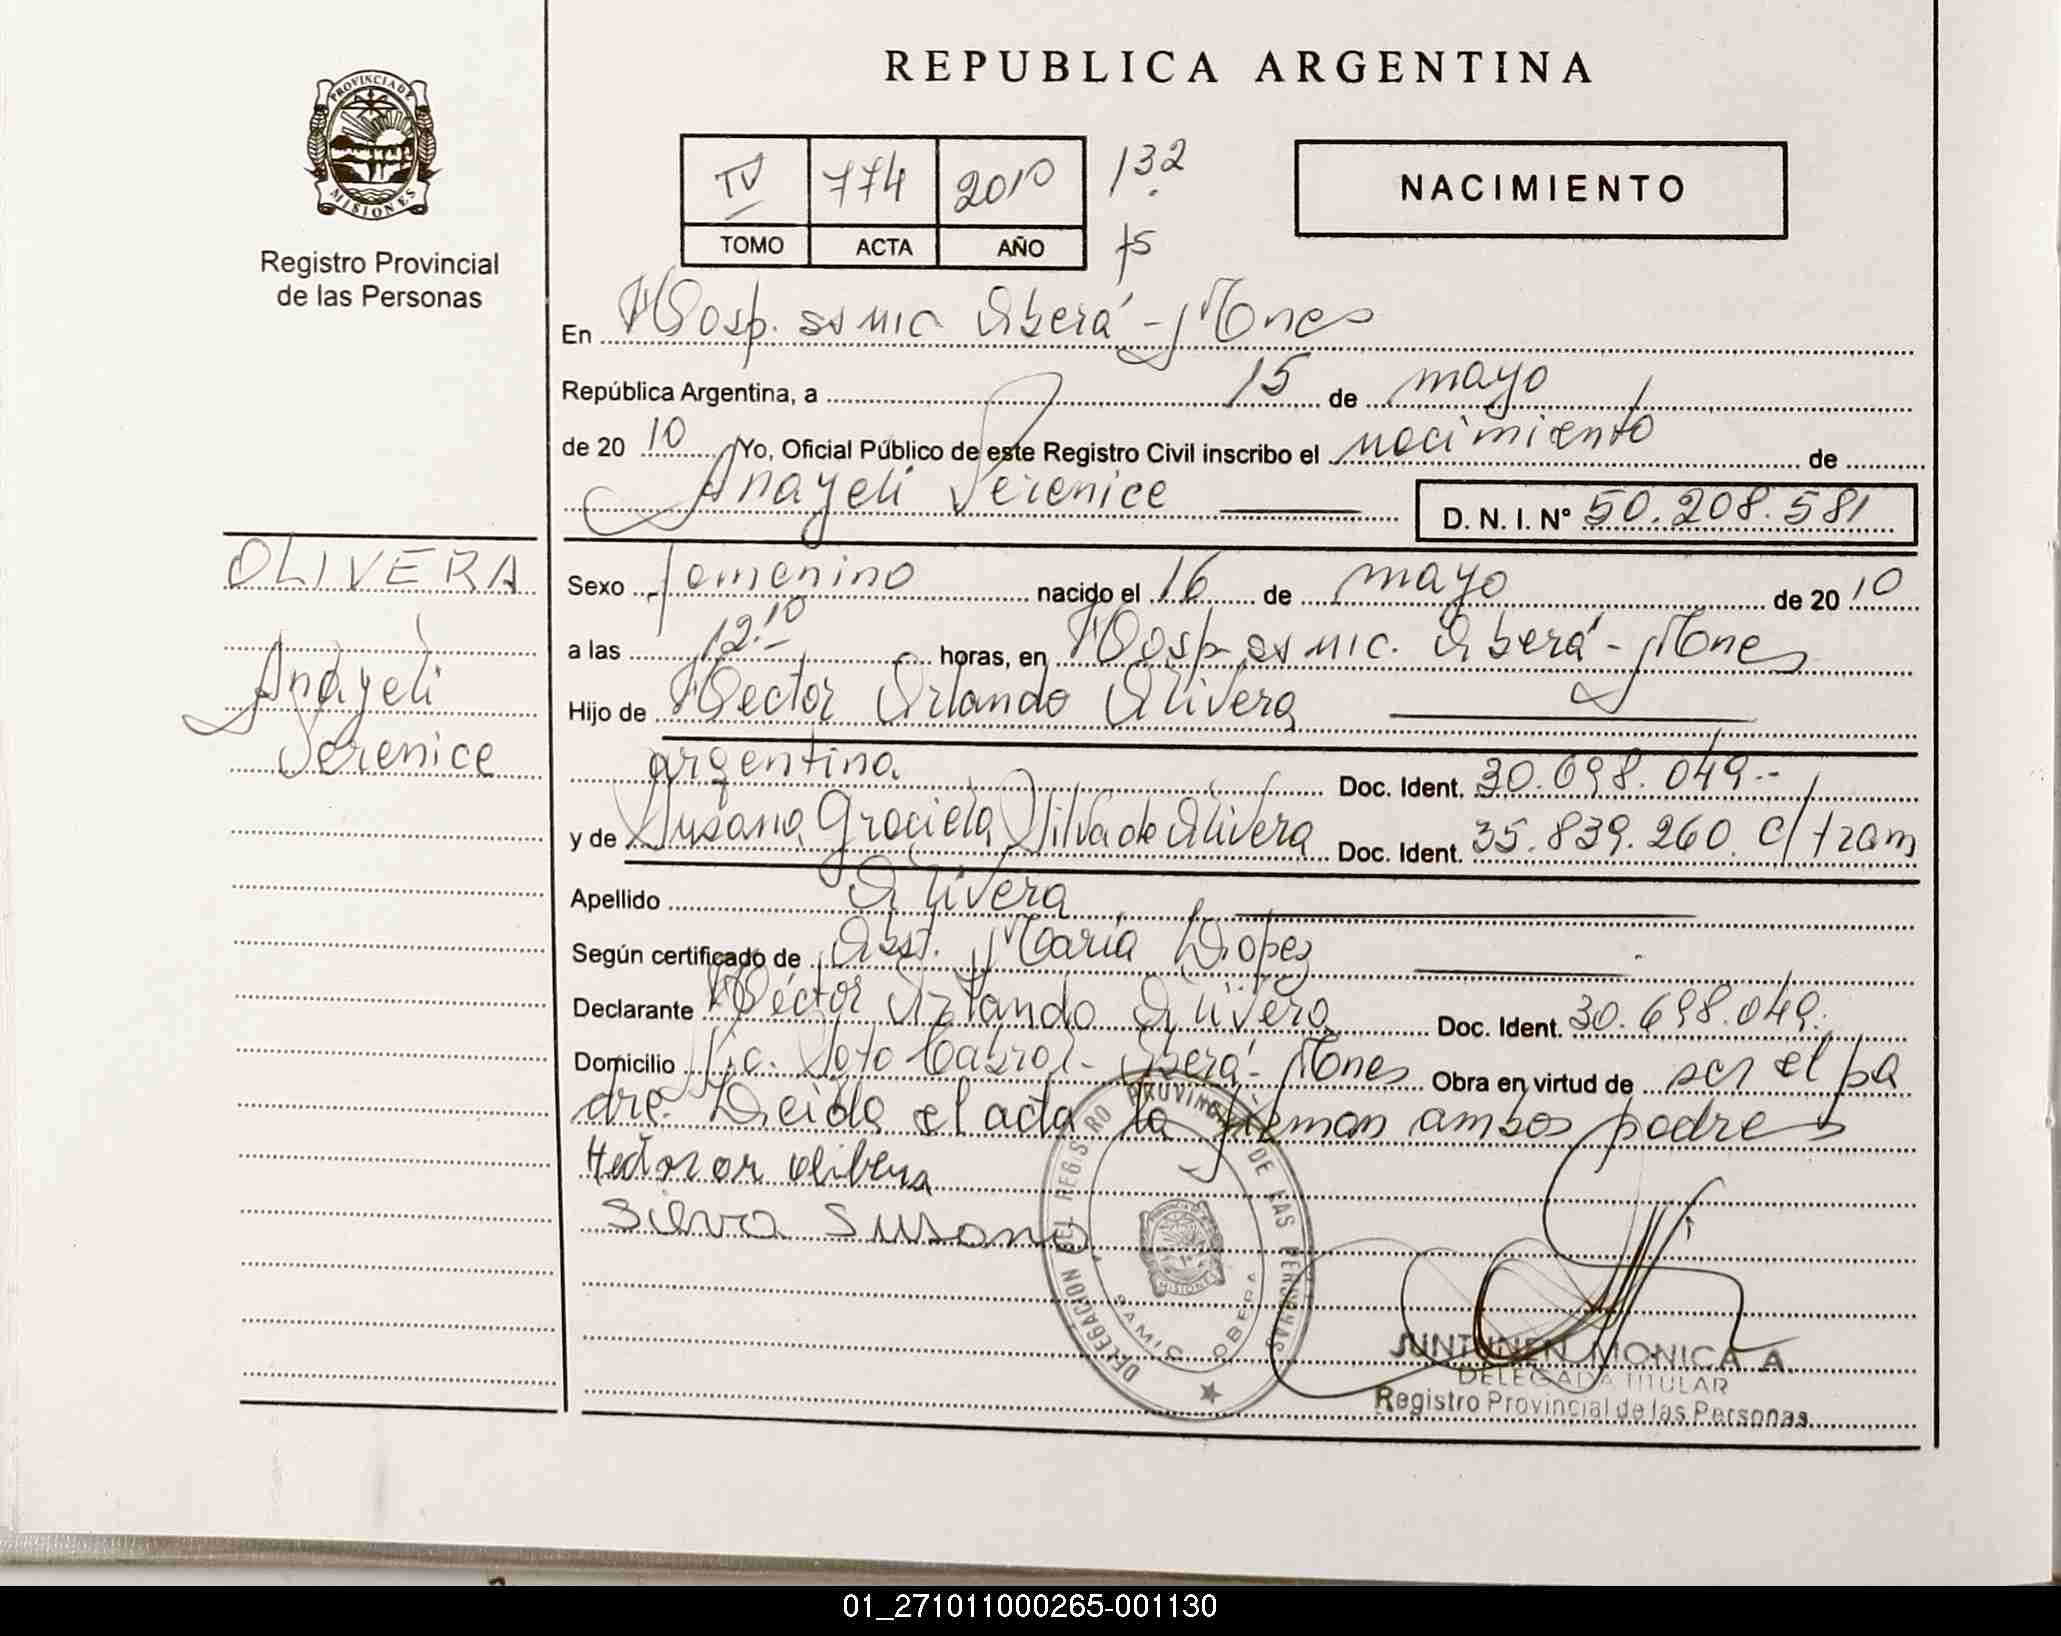 REPUBLICA ARGENTINA
PROVINCIA DE
MISIONES
Registro Provincial
de las Personas
IV 774 2010 132
TOMO ACTA AÑO 75
NACIMIENTO
En Hosp. ss mic Oberá - Mnes
República Argentina, a 15 de mayo
de 2010 Yo, Oficial Público de este Registro Civil inscribo el nacimiento de
Anayeli Serenice D. N. I. Nº 50.208.581
OLIVERA
Anayeli
Serenice
Sexo femenino nacido el 16 de mayo de 2010
a las 12:10 horas, en Hosp ss mic. Oberá - Mnes
Hijo de Hector Orlando Olivera
argentina Doc. Ident. 30.698.049.-
y de Susana Graciela Silva de Olivera Doc. Ident. 35.839.260 c/tram
Apellido Olivera
Según certificado de Obst. María Lopez
Declarante Héctor Orlando Olivera Doc. Ident. 30.698.049.
Domicilio Soto Cabral - Oberá - Mnes Obra en virtud de ser el pa
dre. Leida el acta la firman ambos padres
olibera
Silva Susana
DELEGACION DEL REGISTRO PROVINCIAL DE LAS PERSONAS
MISIONES
SAMIC OBERA
JUNTUNEN MONICA A.
DELEGADA TITULAR
Registro Provincial de las Personas
01_271011000265-001130